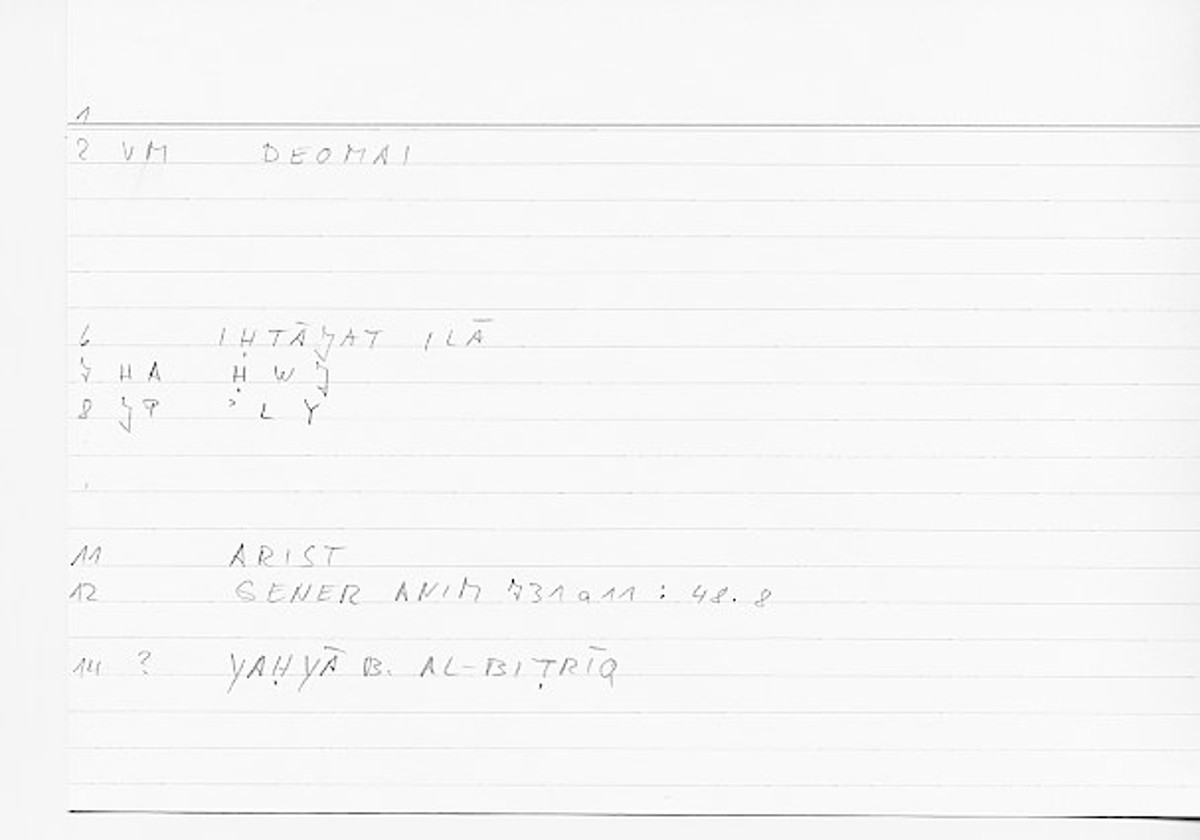 1
2 VM DEOMAI
6 IḤTĀJAT ILĀ
7 HA Ḥ W J
8 JP ʾ L Y
11 ARIST
12 GENER ANIM 731a11 : 48.8
14 ? YAḤYĀ B. AL-BIṬRĪQ